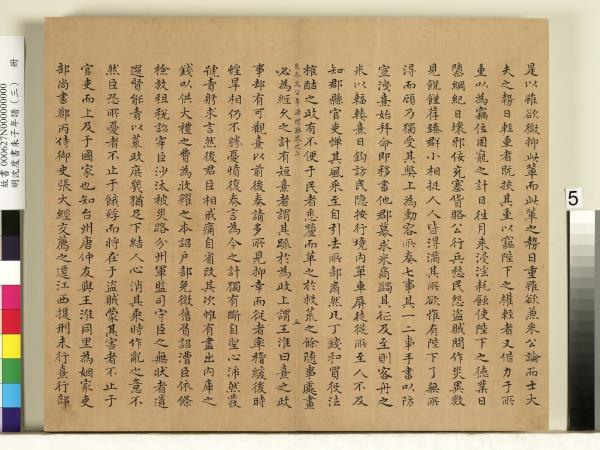 是以雖欲微抑此輩而此輩之勢日重雖欲兼采公論而士大
夫之勢日輕重者既挾其重以竊陛下之權輕者又借力于所
重以為竊位固寵之計日往月來浸淫耗蝕使陛下之德業日
隳綱紀日壞邪佞充塞貨賂公行兵愁民怨盜賊間作災異數
見饑饉荐臻群小相挺人人皆得滿其所欲惟有陛下了無所
得而顧乃獨受其弊上為動容所奏七事其一二事手書以防
宣洩熹始拜命即移書他郡募米商蠲其征及至則客舟之
米以輻輳熹日鈎訪民隱按行境內單車屏徒從所至人不及
知郡縣官吏憚其風采至自引去所部肅然凡丁錢和買役法
榷酤之政有不便于民者悉釐而革之於救荒之餘隨事處畫
五
必為經久之計有短熹者謂其疎於為政上謂王淮曰熹之政
事却有可觀熹以前後奏請多所見抑幸而從者率稽緩後時
蝗旱相仍不勝憂憤復奏言為今之計獨有斷自聖心沛然發
號責躬求言然後君臣相戒痛自省改其次惟有盡出內庫之
錢以供大禮之費為收糴之本詔戶部免徵舊負詔漕臣依條
檢放租稅詔宰臣沙汰被災路分州軍監司守臣之無狀者遴
選賢能責以荒政庶幾猶足下結人心消其乘時作亂之意不
然臣恐所憂者不止于餓殍而將在于盜賊蒙其害者不止于
官吏而上及于國家也知台州唐仲友與王淮同里為姻家吏
部尚書鄭丙侍御史張大經交薦之遷江西提刑未行熹行部
故書000627N000000000
明沈度書朱子年譜(三) 冊
5